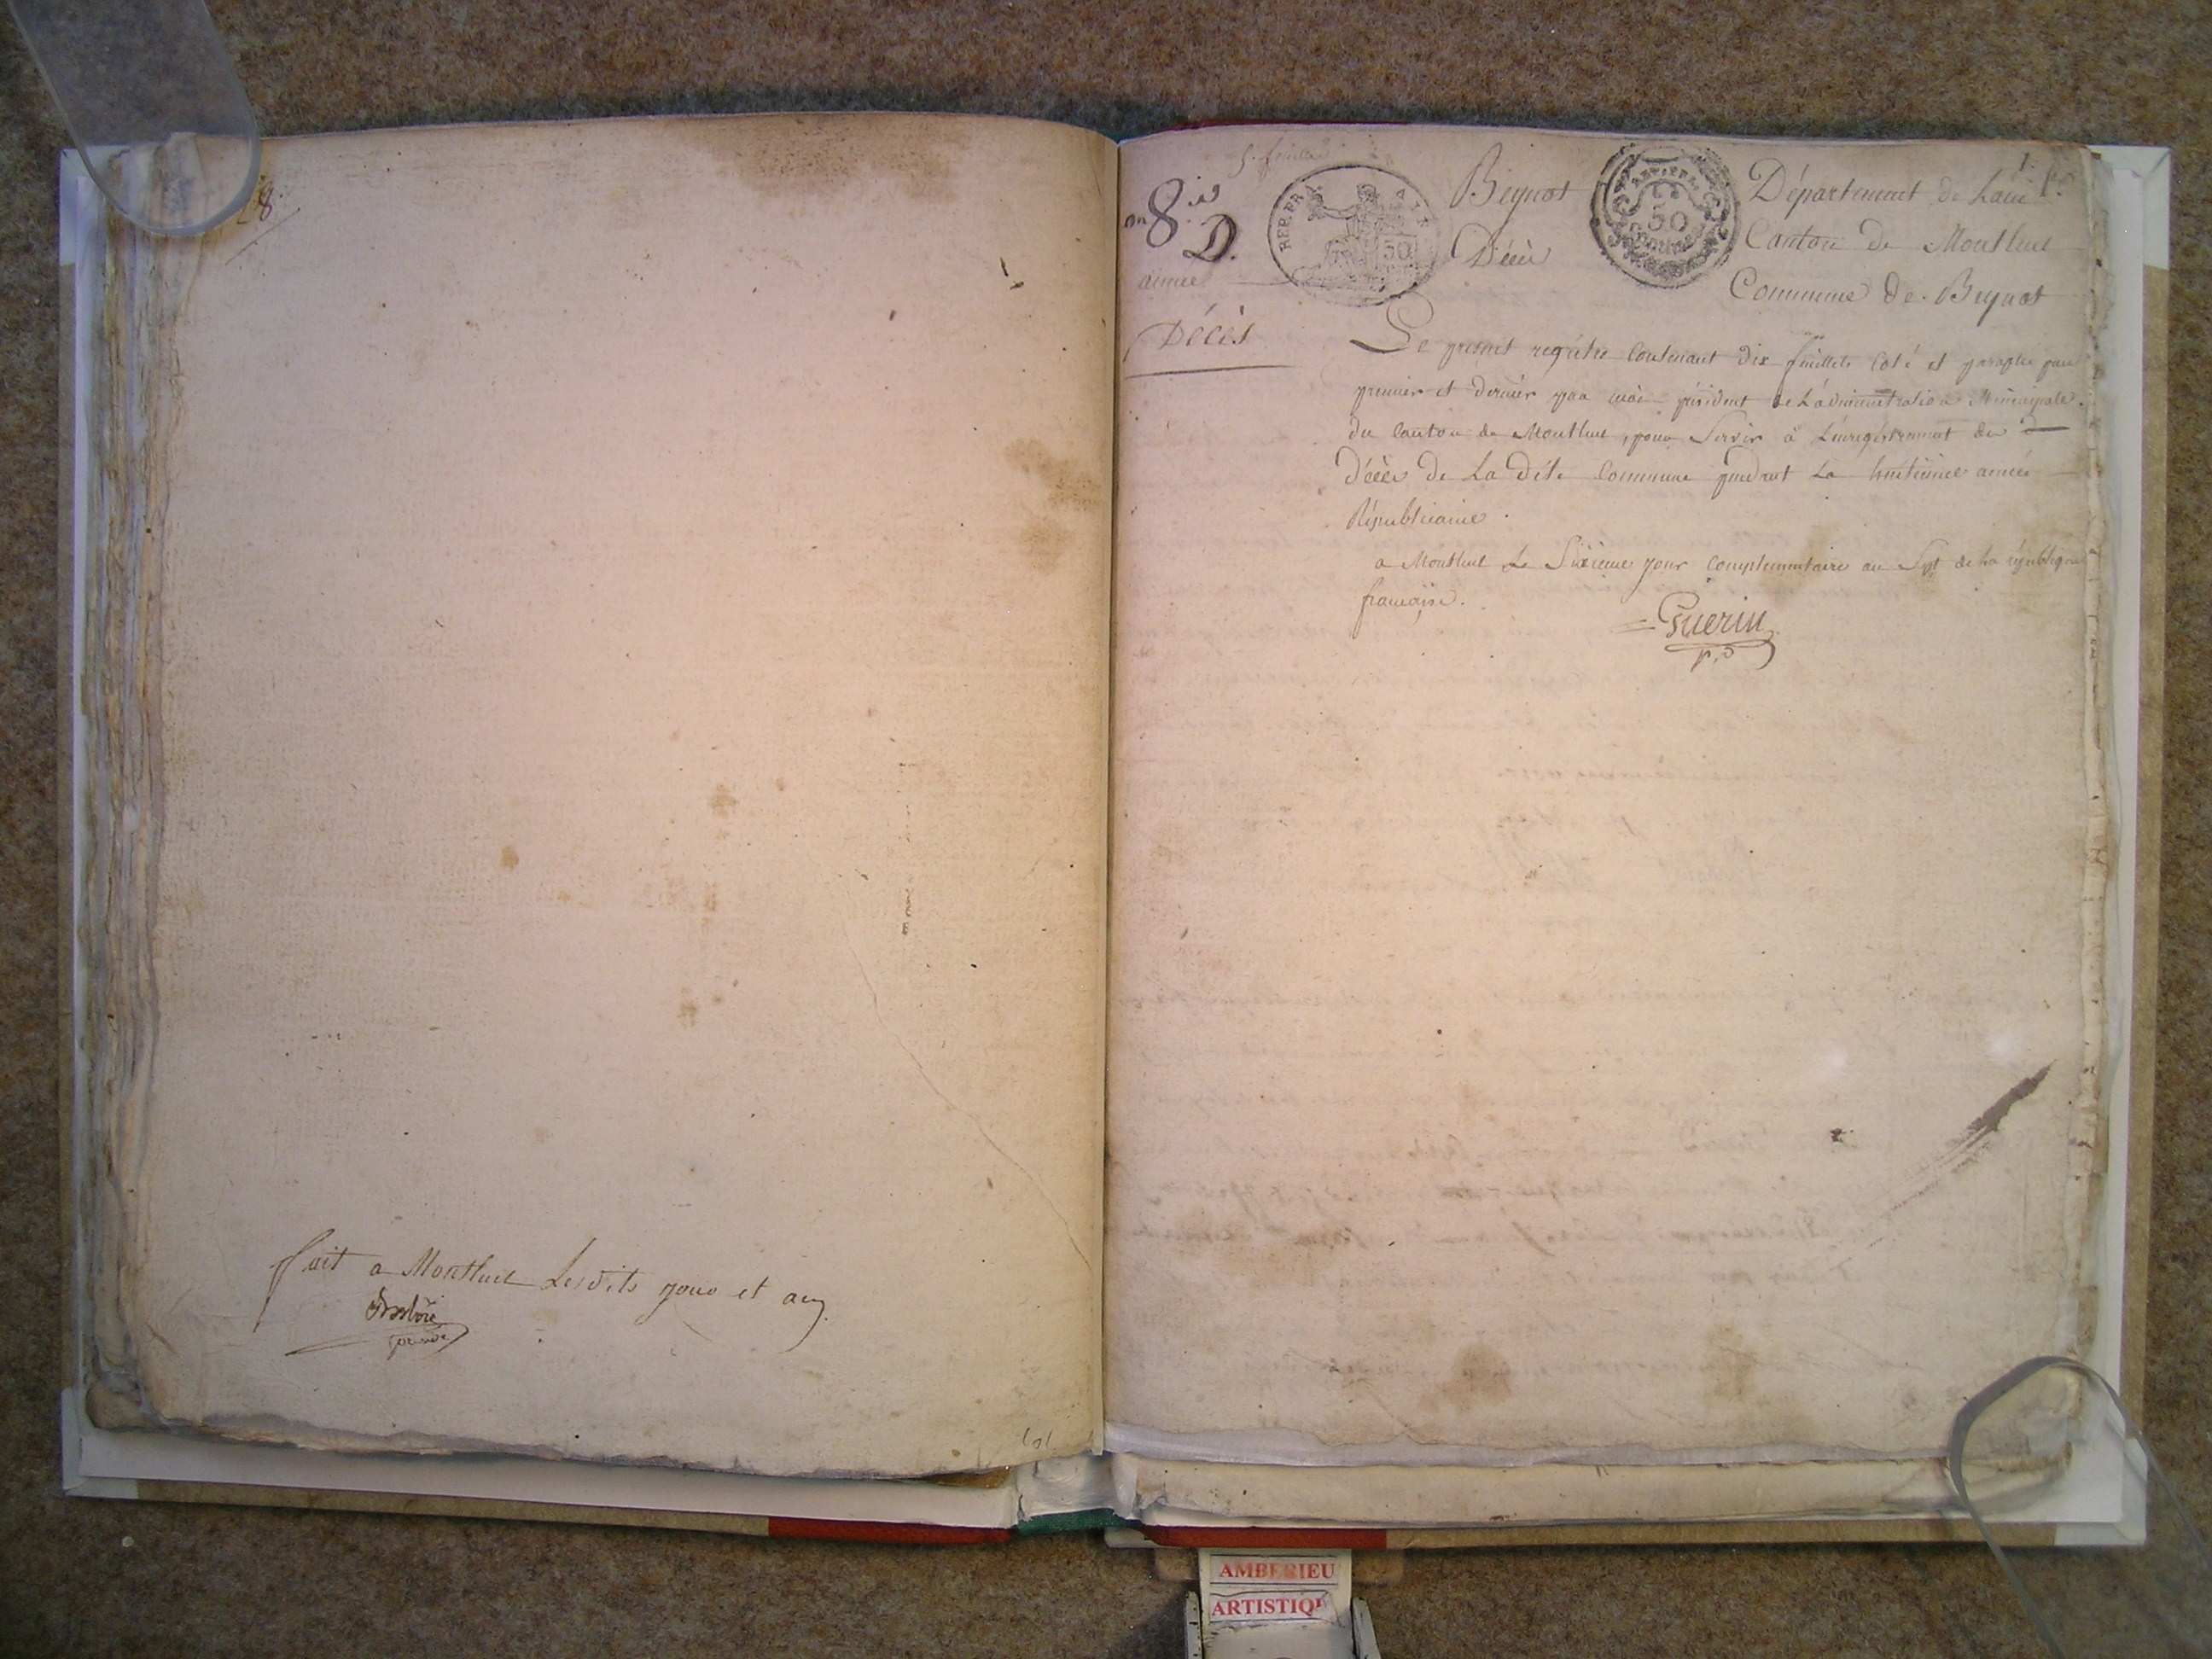 28.
fait a Montluel Lesdits jour et an
5. feuille
an 8.
D.
année
Décès
REP. FRA
50
Beynost
Décès
50
1. f.
Département de Lain
Canton de Montluel
Commune de Beynost
Le présent regitre Contenant dix feuillets Coté et paraphé par
premier et dernier par moi président de Ladministration Municipale
du Canton de Montluel, pour Servir à Lenregistrement des
Décès de La dite Commune pendant La huitieme année
Républicaine.
a Montluel Le Sixieme jour Complementaire an Sept de La république
francaise.
Guerin
p.d
AMBERIEU
ARTISTIQ